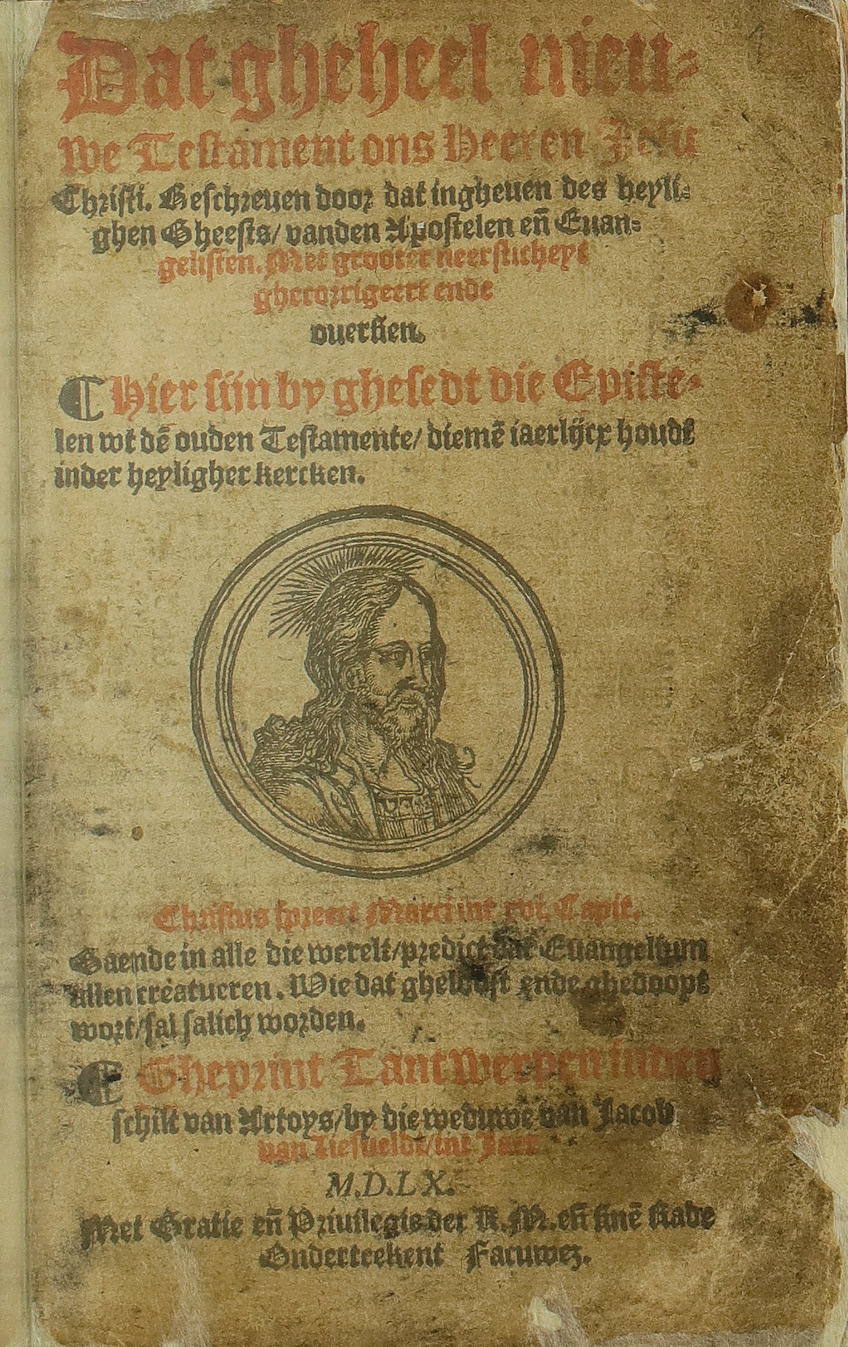 Dat gheheel nieu⸗
we Testament ons Heeren Jesu
Christi. Geschreuen door dat ingheuen des heyli⸗
ghen Gheests/ vanden Apostelen eñ Euan⸗
gelisten. Met grooter neersticheyt
ghecorrigeert ende
ouersien.
¶ Hier sijn by ghesedt die Episte⸗
len wt dē ouden Testamente/ diemē iaerlijcx houdt
inder heyligher kercken.
Christus spreect Marci int xvi. Capit.
Gaende in alle die werelt/predict dat Euangelium
allen creatueren. Wie dat ghelooft ende ghedoopt
wort/sal salich worden.
¶ Gheprint Tantwerpen inden
schilt van Artoys/by die weduwe van Jacob
van Liesueldt/int Jaer
M.D.LX.
Met Gratie eñ Priuilegie der K. M. eñ sinē Rade
Onderteekent Facuwez.